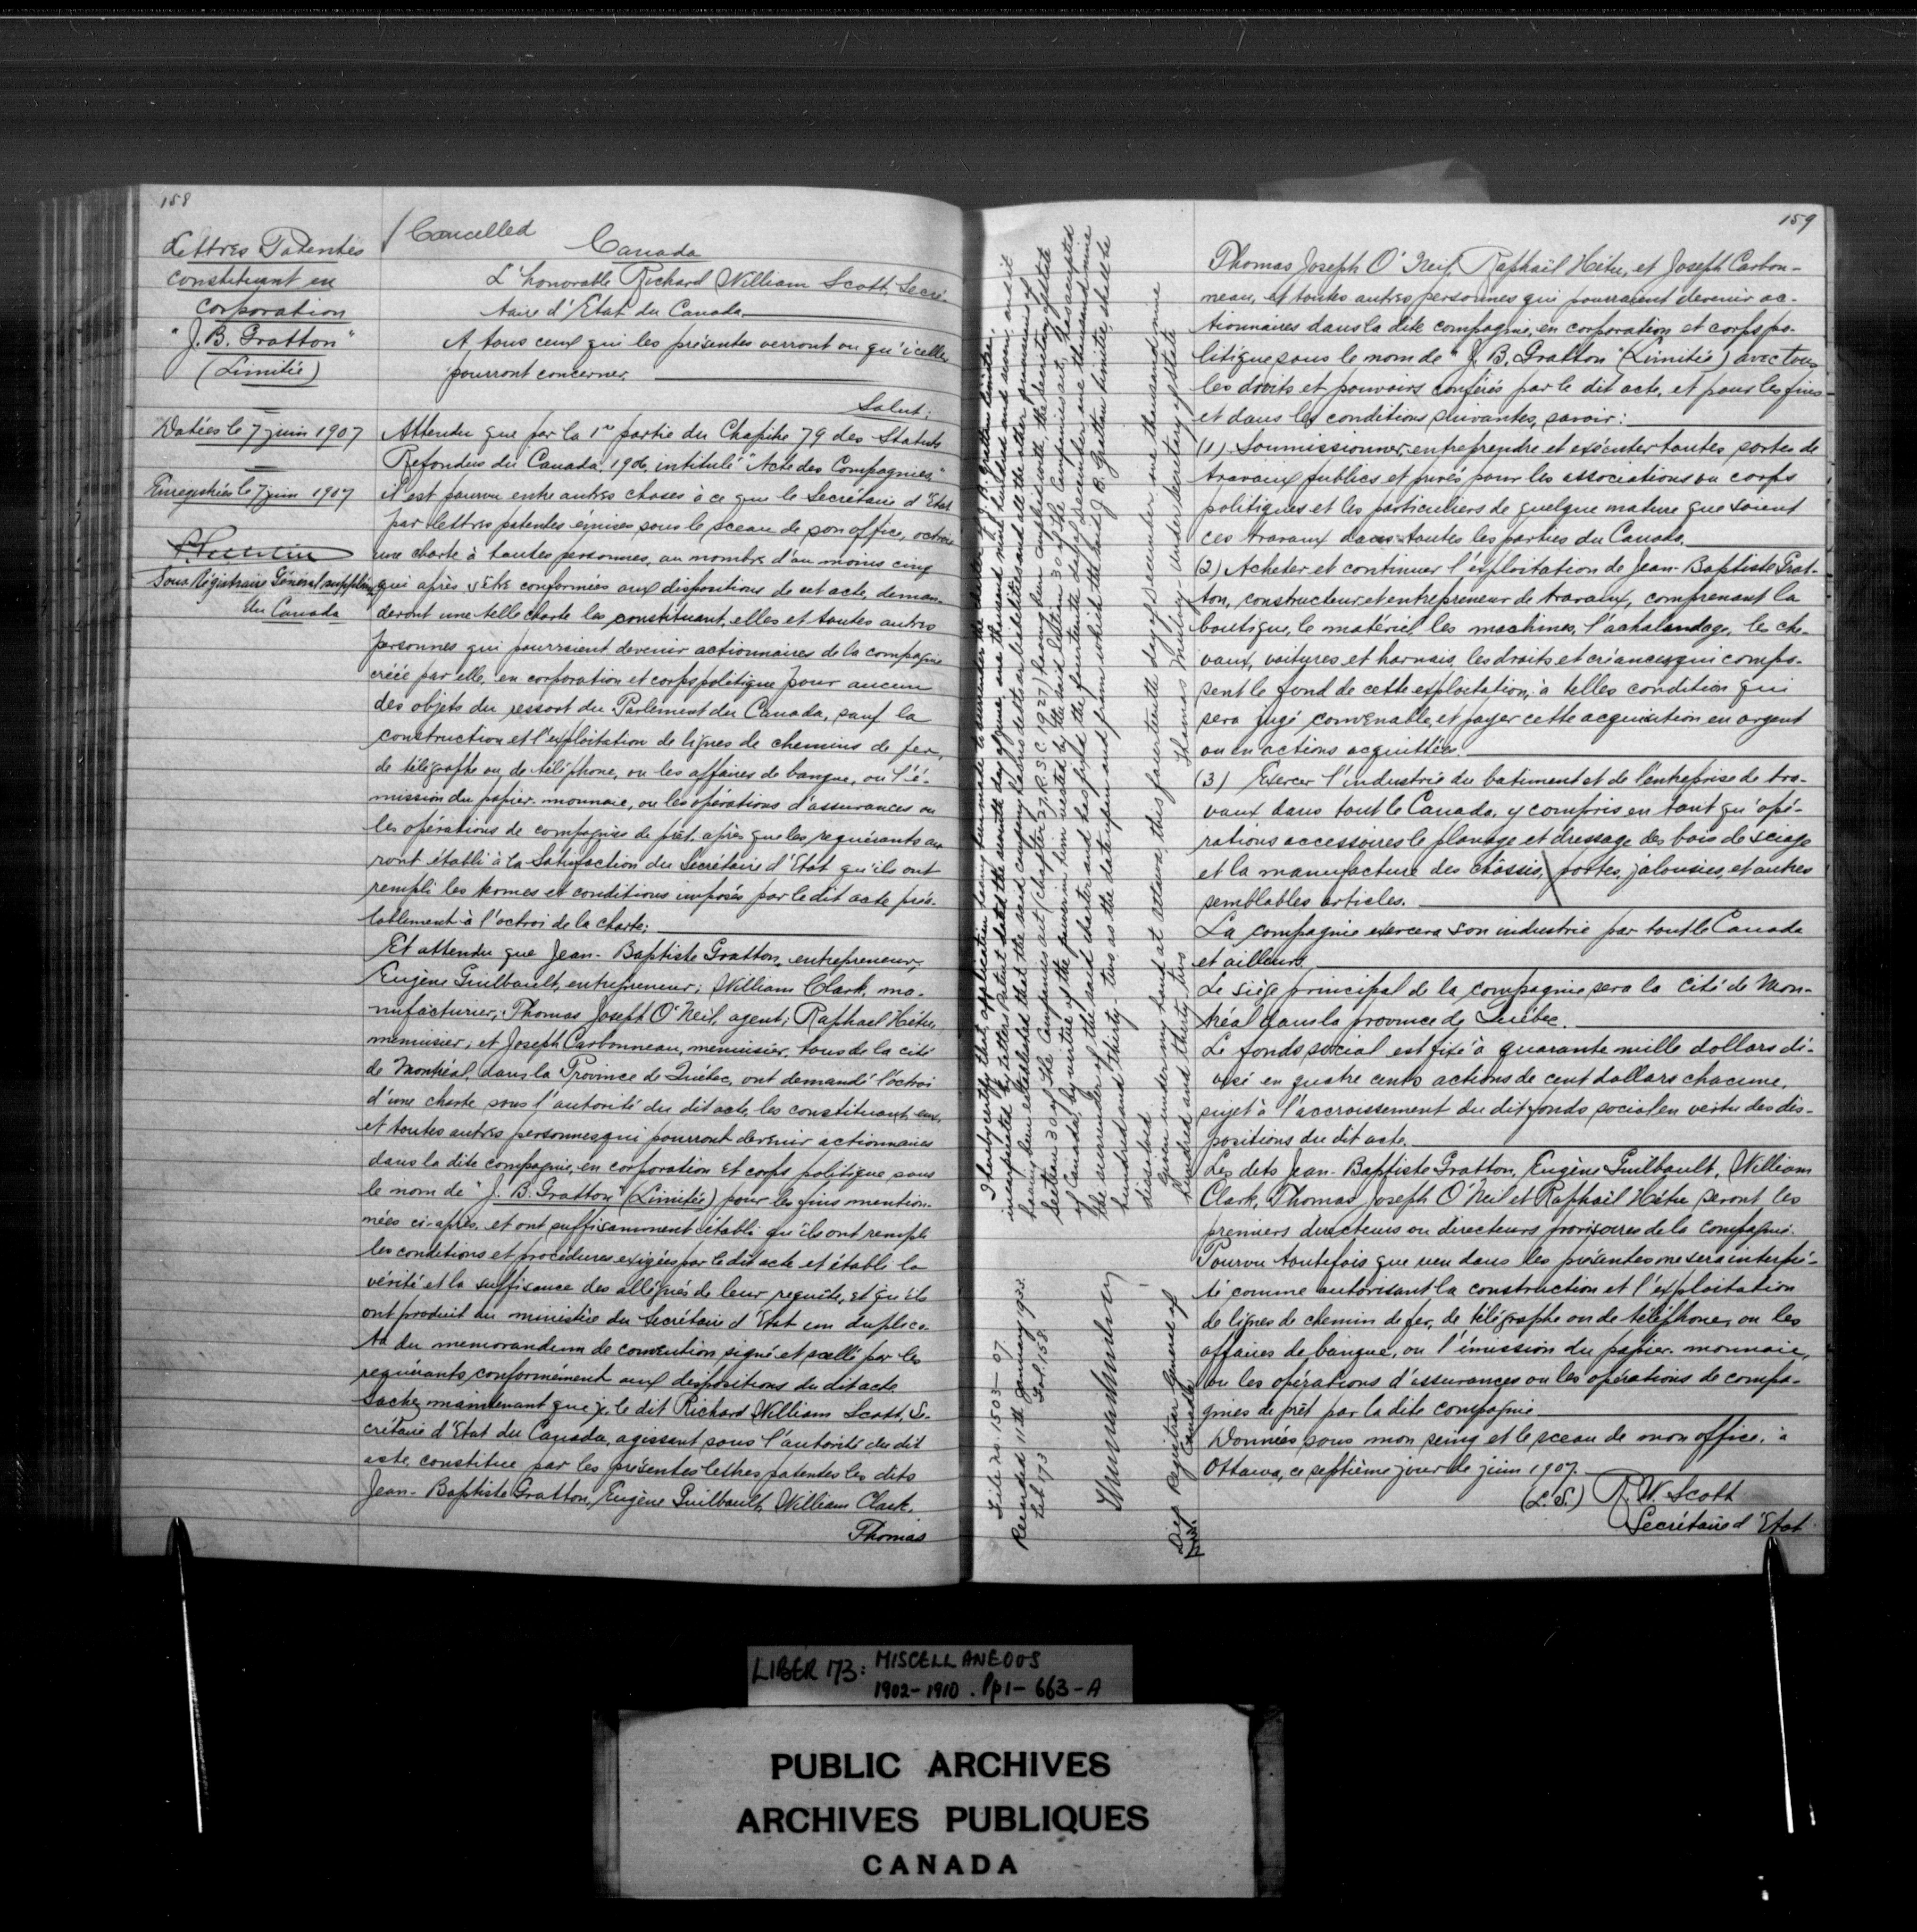 158
Lettres Patentes
constituant en
corporation
"J. B. Gratton"
(Limitée)
Datées le 7 juin 1907
Enregistrées le 7 juin 1907
Sous Régistraire Général suppléant
du Canada
Cancelled
Canada
L'honorable Richard William Scott, Secré-
taire d'Etat du Canada,
A tous ceux qui les présentes verront ou qu'icelles
pourront concerner,
Salut:
Attendu que par la 1re partie du Chapitre 79 des Statuts
Refondus du Canada, 1906, intitulé "Acte des Compagnies,"
il est pourvu entre autres choses à ce que le Secrétaire d'Etat
par lettres patentes émises sous le sceau de son office, octroie
une charte à toutes personnes, au nombre d'au moins cinq
qui après s'être conformées aux dispositions de cet acte, deman-
deront une telle charte les constituant, elles et toutes autres
personnes qui pourraient devenir actionnaires de la compagnie
créée par elle, en corporation et corps politique pour aucun
des objets du ressort du Parlement du Canada, sauf la
construction et l'exploitation de lignes de chemins de fer,
de télégraphe ou de téléphone, ou les affaires de banque, ou l'é-
mission du papier-monnaie, ou les opérations d'assurances ou
les opérations de compagnies de prêt, après que les requérants au-
ront établi à la Satisfaction du Secrétaire d'Etat qu'ils ont
rempli les termes et conditions imposés par le dit acte préa-
lablement à l'octroi de la charte;
Et attendu que Jean-Baptiste Gratton, entrepreneur;
Eugène Guilbault, entrepreneur; William Clark, ma-
nufacturier; Thomas Joseph O'Neil, agent; Raphael Hétu,
menuisier; et Joseph Carbonneau, menuisier, tous de la cité
de Montréal, dans la Province de Québec, ont demandé l'octroi
d'une charte sous l'autorité du dit acte, les constituant, eux,
et toutes autres personnes qui pourront devenir actionnaires
dans la dite compagnie, en corporation et corps politique sous
le nom de "J. B. Gratton" (Limitée) pour les fins mention-
nées ci-après, et ont suffisamment établi qu'ils ont rempli
les conditions et procédures exigées par le dit acte et établi la
vérité et la suffisance des allégués de leur requête, et qu'ils
ont produit au ministère du Secrétaire d'Etat un duplica-
ta du memorandum de convention signé et scellé par les
requérants, conformément aux dispositions du dit acte
Sachez maintenant que je, le dit Richard William Scott, Se-
crétaire d'Etat du Canada, agissant sous l'autorité du dit
acte, constitue par les présentes lettres patentes les dits
Jean-Baptiste Gratton, Eugène Guilbault, William Clark,
Thomas
I hereby certify that, application having been made to surrender the charter of J. B. Gratton limitée,
incorporated by letters patent dated the seventh day of June, one thousand nine hundred and seven; and it
having been established that the said company has no debts or liabilities and all the other provisions of
Section 30 of The Companies act (Chapter 27. R. S. C. 1927) having been complied with, the secretary of state
of Canada, by virtue of the power in him vested by the said Section 30 of the Companies act, has accepted
the surrender of the said charter and has fixed the fourteenth day of December one thousand nine
hundred and Thirty-two as the date upon and from which the said J. B. Gratton limitée, shall be
dissolved.
Given under my hand at Ottawa, this fourteenth day of December one thousand nine
hundred and thirty two
Thomas Mulvey - under secretary of state
File no. 1503-07
Recorded 11th January 1933.
Lib 173 Fol. 158
Dep Registrar General of
Canada
159
Thomas Joseph O'Neil, Raphaël Hétu, et Joseph Carbon-
neau, et toutes autres personnes qui pourraient devenir ac-
tionnaires dans la dite compagnie, en corporation et corps po-
litique sous le nom de "J. B. Gratton" (Limitée) avec tous
les droits et pouvoirs conférés par le dit acte, et pour les fins
et dans les conditions suivantes, savoir:
(1) Soumissionner, entreprendre et exécuter toutes sortes de
travaux publics et privés pour les associations ou corps
politiques et les particuliers de quelque nature que soient
ces travaux dans toutes les parties du Canada.
(2) Acheter et continuer l'exploitation de Jean-Baptiste Grat-
ton, constructeur et entrepreneur de travaux, comprenant la
boutique, le matériel, les machines, l'achalandage, les che-
vaux, voitures et harnais, les droits et créances qui compo-
sent le fond de cette exploitation, à telles condition qui
sera jugé convenable, et payer cette acquisition en argent
ou en actions acquittées.
(3) Exercer l'industrie du batiment et de l'entreprise de tra-
vaux dans tout le Canada, y compris en tant qu'opé-
rations accessoires le planage et dressage des bois de sciage
et la manufacture des châssis, portes, jalousies, et autres
semblables articles.
La compagnie exercera son industrie par tout le Canada
et ailleurs.
Le siège principal de la compagnie sera la cité de Mon-
tréal dans la province de Québec.
Le fonds social est fixé à quarante mille dollars di-
visé en quatre cents actions de cent dollars chacune,
sujet à l'accroissement du dit fonds social en vertu des dis-
positions du dit acte.
Les dits Jean-Baptiste Gratton, Eugène Guilbault, William
Clark, Thomas Joseph O'Neil et Raphaël Hétu seront les
premiers directeurs ou directeurs provisoires de la compagnie.
Pourvu toutefois que rien dans les présentes ne sera interpré-
té comme autorisant la construction et l'exploitation
de lignes de chemin de fer, de télégraphe ou de téléphone, ou les
affaires de banque, ou l'émission du papier-monnaie,
ou les opérations d'assurances ou les opérations de compa-
gnies de prêt par la dite compagnie
Données sous mon seing et le sceau de mon office, à
Ottawa, ce septième jour de juin 1907.
(L.S.) R. W. Scott
Secrétaire d'Etat
LIBER 173: MISCELLANEOUS
1902-1910. Pp1-663-A
PUBLIC ARCHIVES
ARCHIVES PUBLIQUES
CANADA